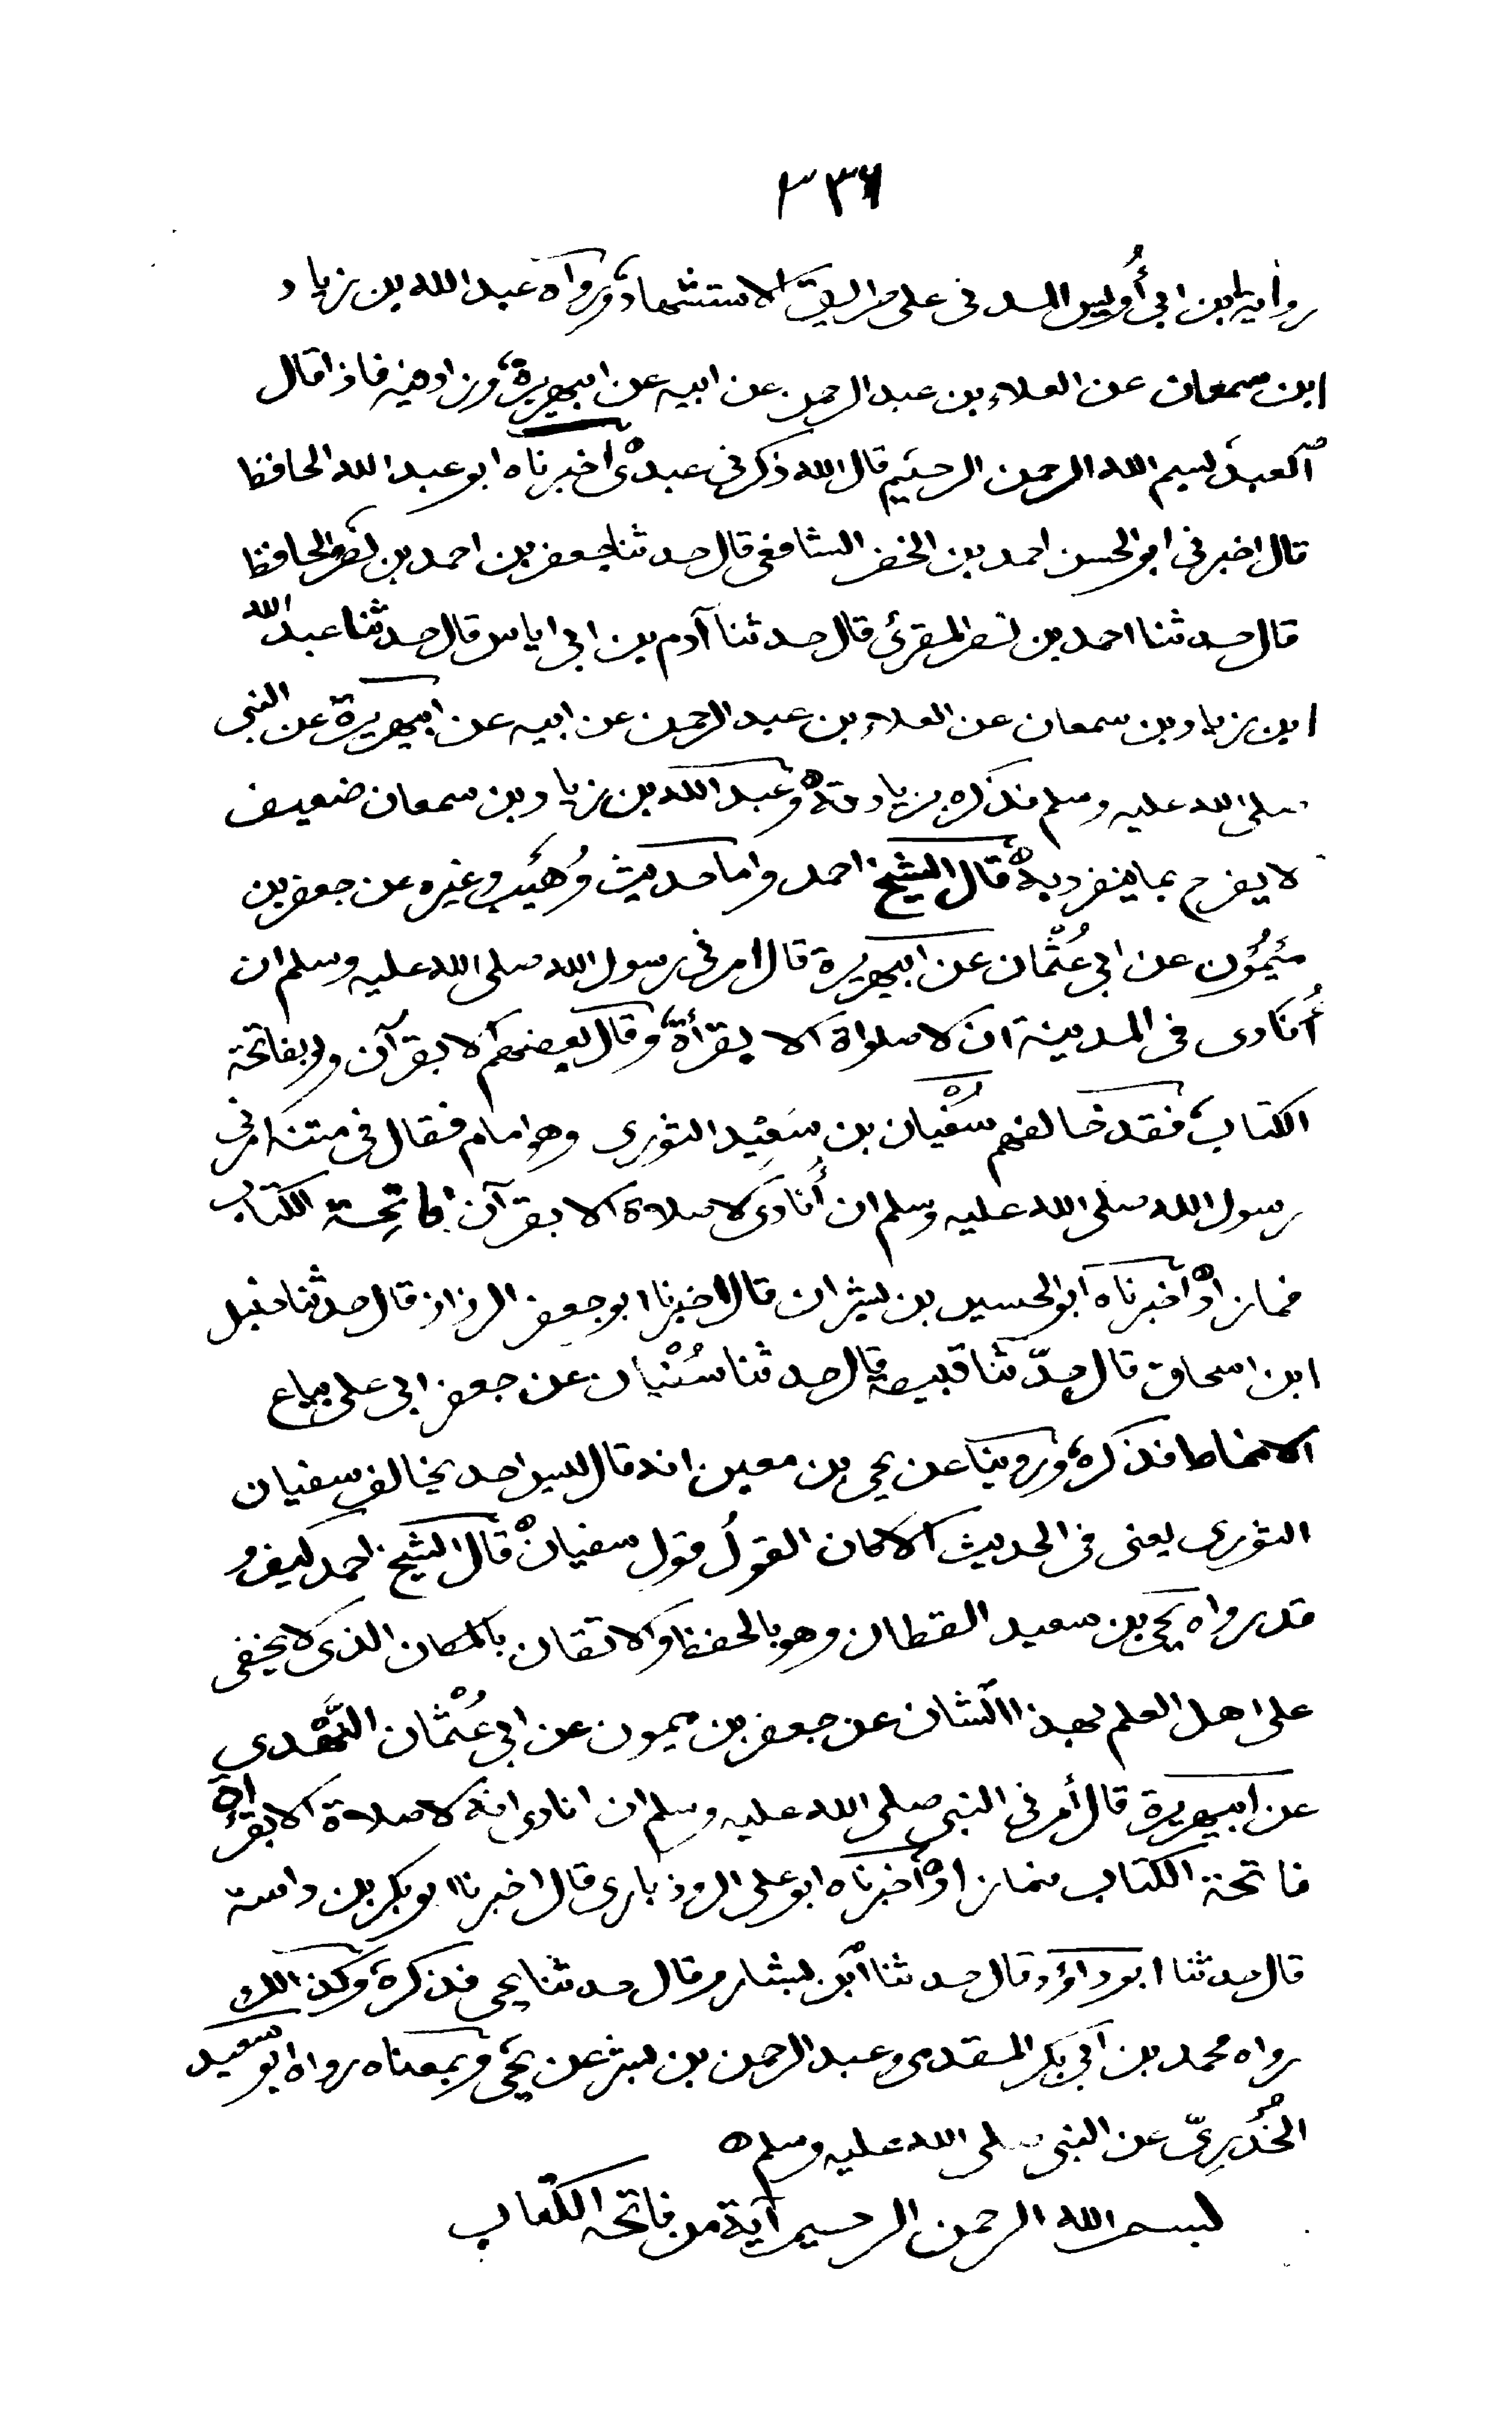 ٣٣٦
رواية ابن ابي أُويس المدني على طريق الاستشهاد، ورواه عبد الله بن زياد
ابن سمعان عن العلاء بن عبد الرحمن عن ابيه عن ابيهريرة، وزاد فيه فاذا قال
العبد بسم الله الرحمن الرحيم قال الله ذكرني عبدي ه اخبرناه ابو عبد الله الحافظ
قال اخبرني ابو الحسن احمد بن الخضر الشافعي قال حدثنا جعفر بن احمد بن نصر الحافظ
قال حدثنا احمد بن نصر المقرئ قال حدثنا آدم بن ابي اياس قال حدثنا عبد الله
ابن زياد بن سمعان عن العلاء بن عبد الرحمن عن ابيه عن ابيهريرة عن النبي
صلى الله عليه وسلم فذكره بزيادته ه وعبد الله بن زياد بن سمعان ضعيف
لا يفرح بما ينفرد به ه قال الشيخ احمد واما حديث وُهَيب وغيره عن جعفر بن
مَيْمُون عن ابي عُثْمان عن ابيهريرة قال امرني رسول الله صلى الله عليه وسلم ان
أُنَادى في المدينة ان لا صلواة الا بقرأة، وقال بعضهم الا بقرآن ولو بفاتحة
الكتاب، فقد خالفهم سُفْيان بن سَعِيْد الثوري وهو امام فقال في متنه امرني
رسول الله صلى الله عليه وسلم ان أُنادى لا صلاة الا بقرآن فاتحة الكتاب
فما زاد ه اخبرناه ابو الحسين بن بشران قال اخبرنا ابو جعفر الرزاز قال حدثنا حنبل
ابن اسحاق قال حدّثنا قبيصة قال حدثنا سُفْيان عن جعفر ابي علي بياع
الانماط فذكره، وروينا عن يحيى بن معين انه قال ليس احد يخالف سفيان
الثوري يعني في الحديث الا كان القولُ قول سفيان ه قال الشيخ احمد كيف و
قد رواه يحيى بن سعيد القطان وهو بالحفظ والاتقان بالمكان الذي لا يخفى
على اهل العلم بهذا الشان عن جعفر بن ميمون عن ابي عُثْمان النَّهْدي
عن ابيهريرة قال أمرني النبي صلى الله عليه وسلم ان انادى انه لا صلاة الا بقراة
فاتحة الكتاب فما زاد ه اخبرناه ابو علي الروذباري قال اخبرنا ابو بكر بن داسة
قال حدثنا ابو داؤد قال حدثنا ابن بشار قال حدثنا يحيى فذكره، وكذالك
رواه محمد بن ابي بكر المقدمي وعبد الرحمن بن بشر عن يحيى وبمعناه رواه ابو سعيد
الخُدْرِيّ عن النبي صلى الله عليه وسلم ه
بسم الله الرحمن الرحيم آية من فاتحة الكتاب